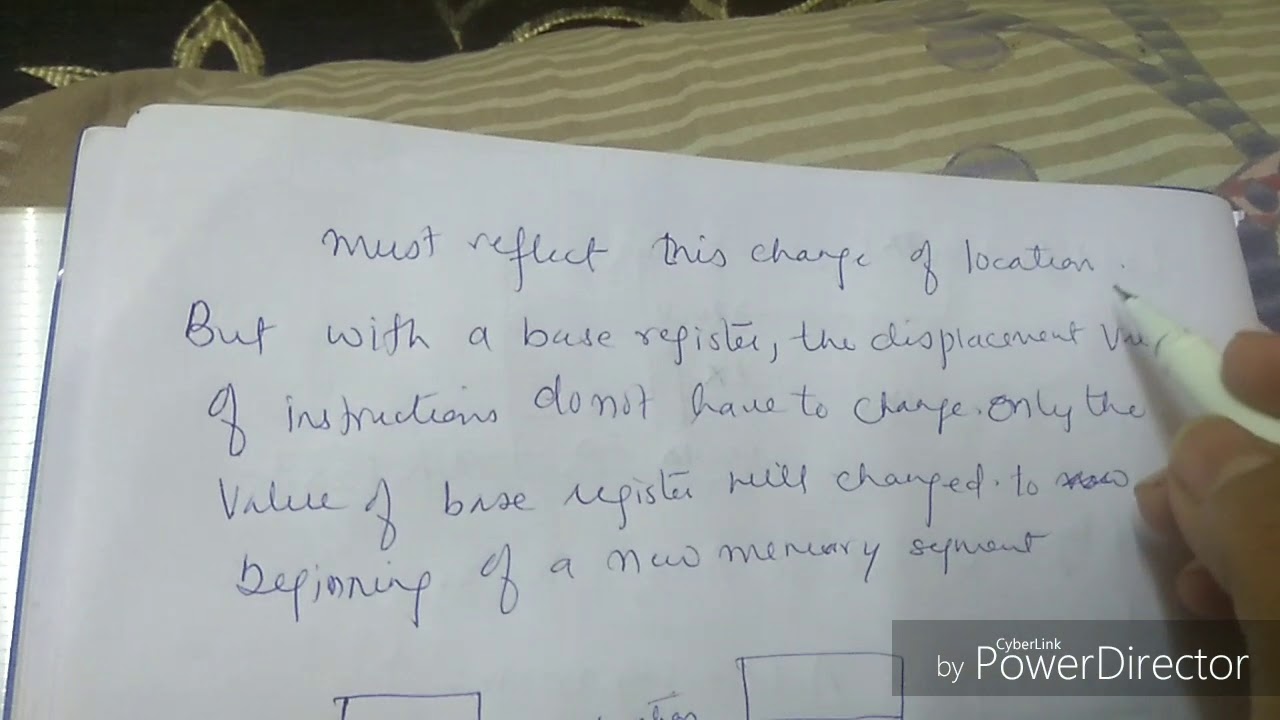 must reflect this change of location.
But with a base register, the displacement
of instructions do not have to change. only the
Value of base register will changed. to
beginning of a new memory segment
CyberLink
by PowerDirector